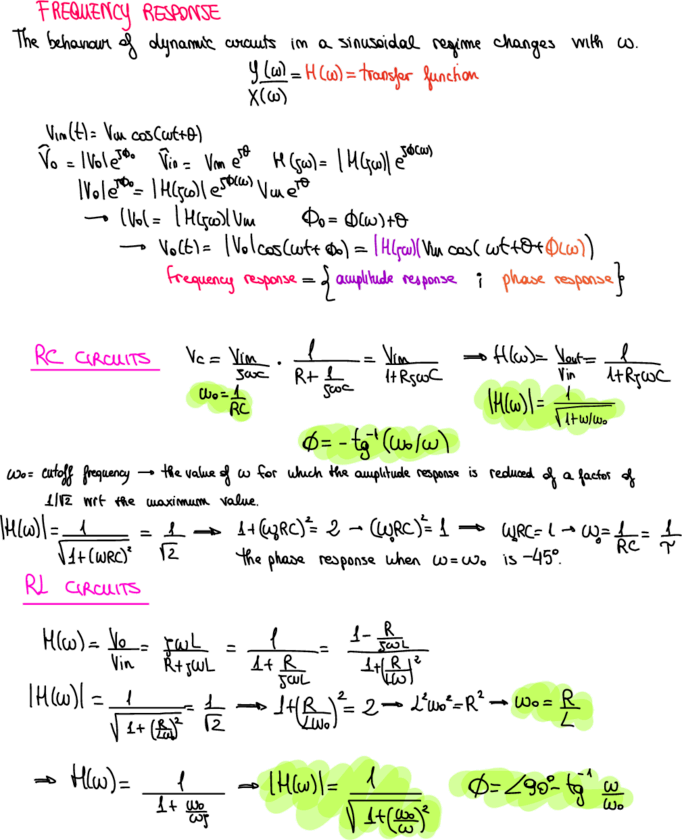 FREQUENCY RESPONSE
The behaviour of dynamic circuits in a sinusoidal regime changes with ω.
Y(ω)/X(ω) = H(ω) = transfer function
Vin(t) = Vm cos(ωt+θ)
V̂o = |Vo|e^{jΦo} V̂in = Vm e^{jθ} H(jω) = |H(jω)|e^{jϕ(ω)}
|Vo|e^{jΦo} = |H(jω)|e^{jϕ(ω)} Vm e^{jθ}
→ |Vo| = |H(jω)|Vm Φo = ϕ(ω)+θ
→ Vo(t) = |Vo|cos(ωt+Φo) = |H(jω)|Vm cos(ωt+θ+ϕ(ω))
Frequency response = {amplitude response ; phase response}
RC CIRCUITS Vc = Vin/jωC · 1/(R+1/jωC) = Vin/(1+RjωC) ⇒ H(ω) = Vout/Vin = 1/(1+RjωC)
ω₀ = 1/RC |H(ω)| = 1/√(1+ω/ω₀)
ϕ = -tg⁻¹(ω₀/ω)
ω₀ = cutoff frequency → the value of ω for which the amplitude response is reduced of a factor of
1/√2 wrt the maximum value.
|H(ω)| = 1/√(1+(ωRC)²) = 1/√2 → 1+(ω₀RC)² = 2 → (ω₀RC)² = 1 → ω₀RC = 1 → ω₀ = 1/RC = 1/τ
the phase response when ω=ω₀ is -45°.
RL CIRCUITS
H(ω) = Vo/Vin = jωL/(R+jωL) = 1/(1+R/jωL) = (1-R/jωL)/(1+(R/Lω)²)
|H(ω)| = 1/√(1+(R/Lω)²) = 1/√2 → 1+(R/Lω₀)² = 2 → L²ω₀² = R² → ω₀ = R/L
⇒ H(ω) = 1/(1+ω₀/ωj) ⇒ |H(ω)| = 1/√(1+(ω₀/ω)²) ϕ = ∠90° - tg⁻¹ ω/ω₀